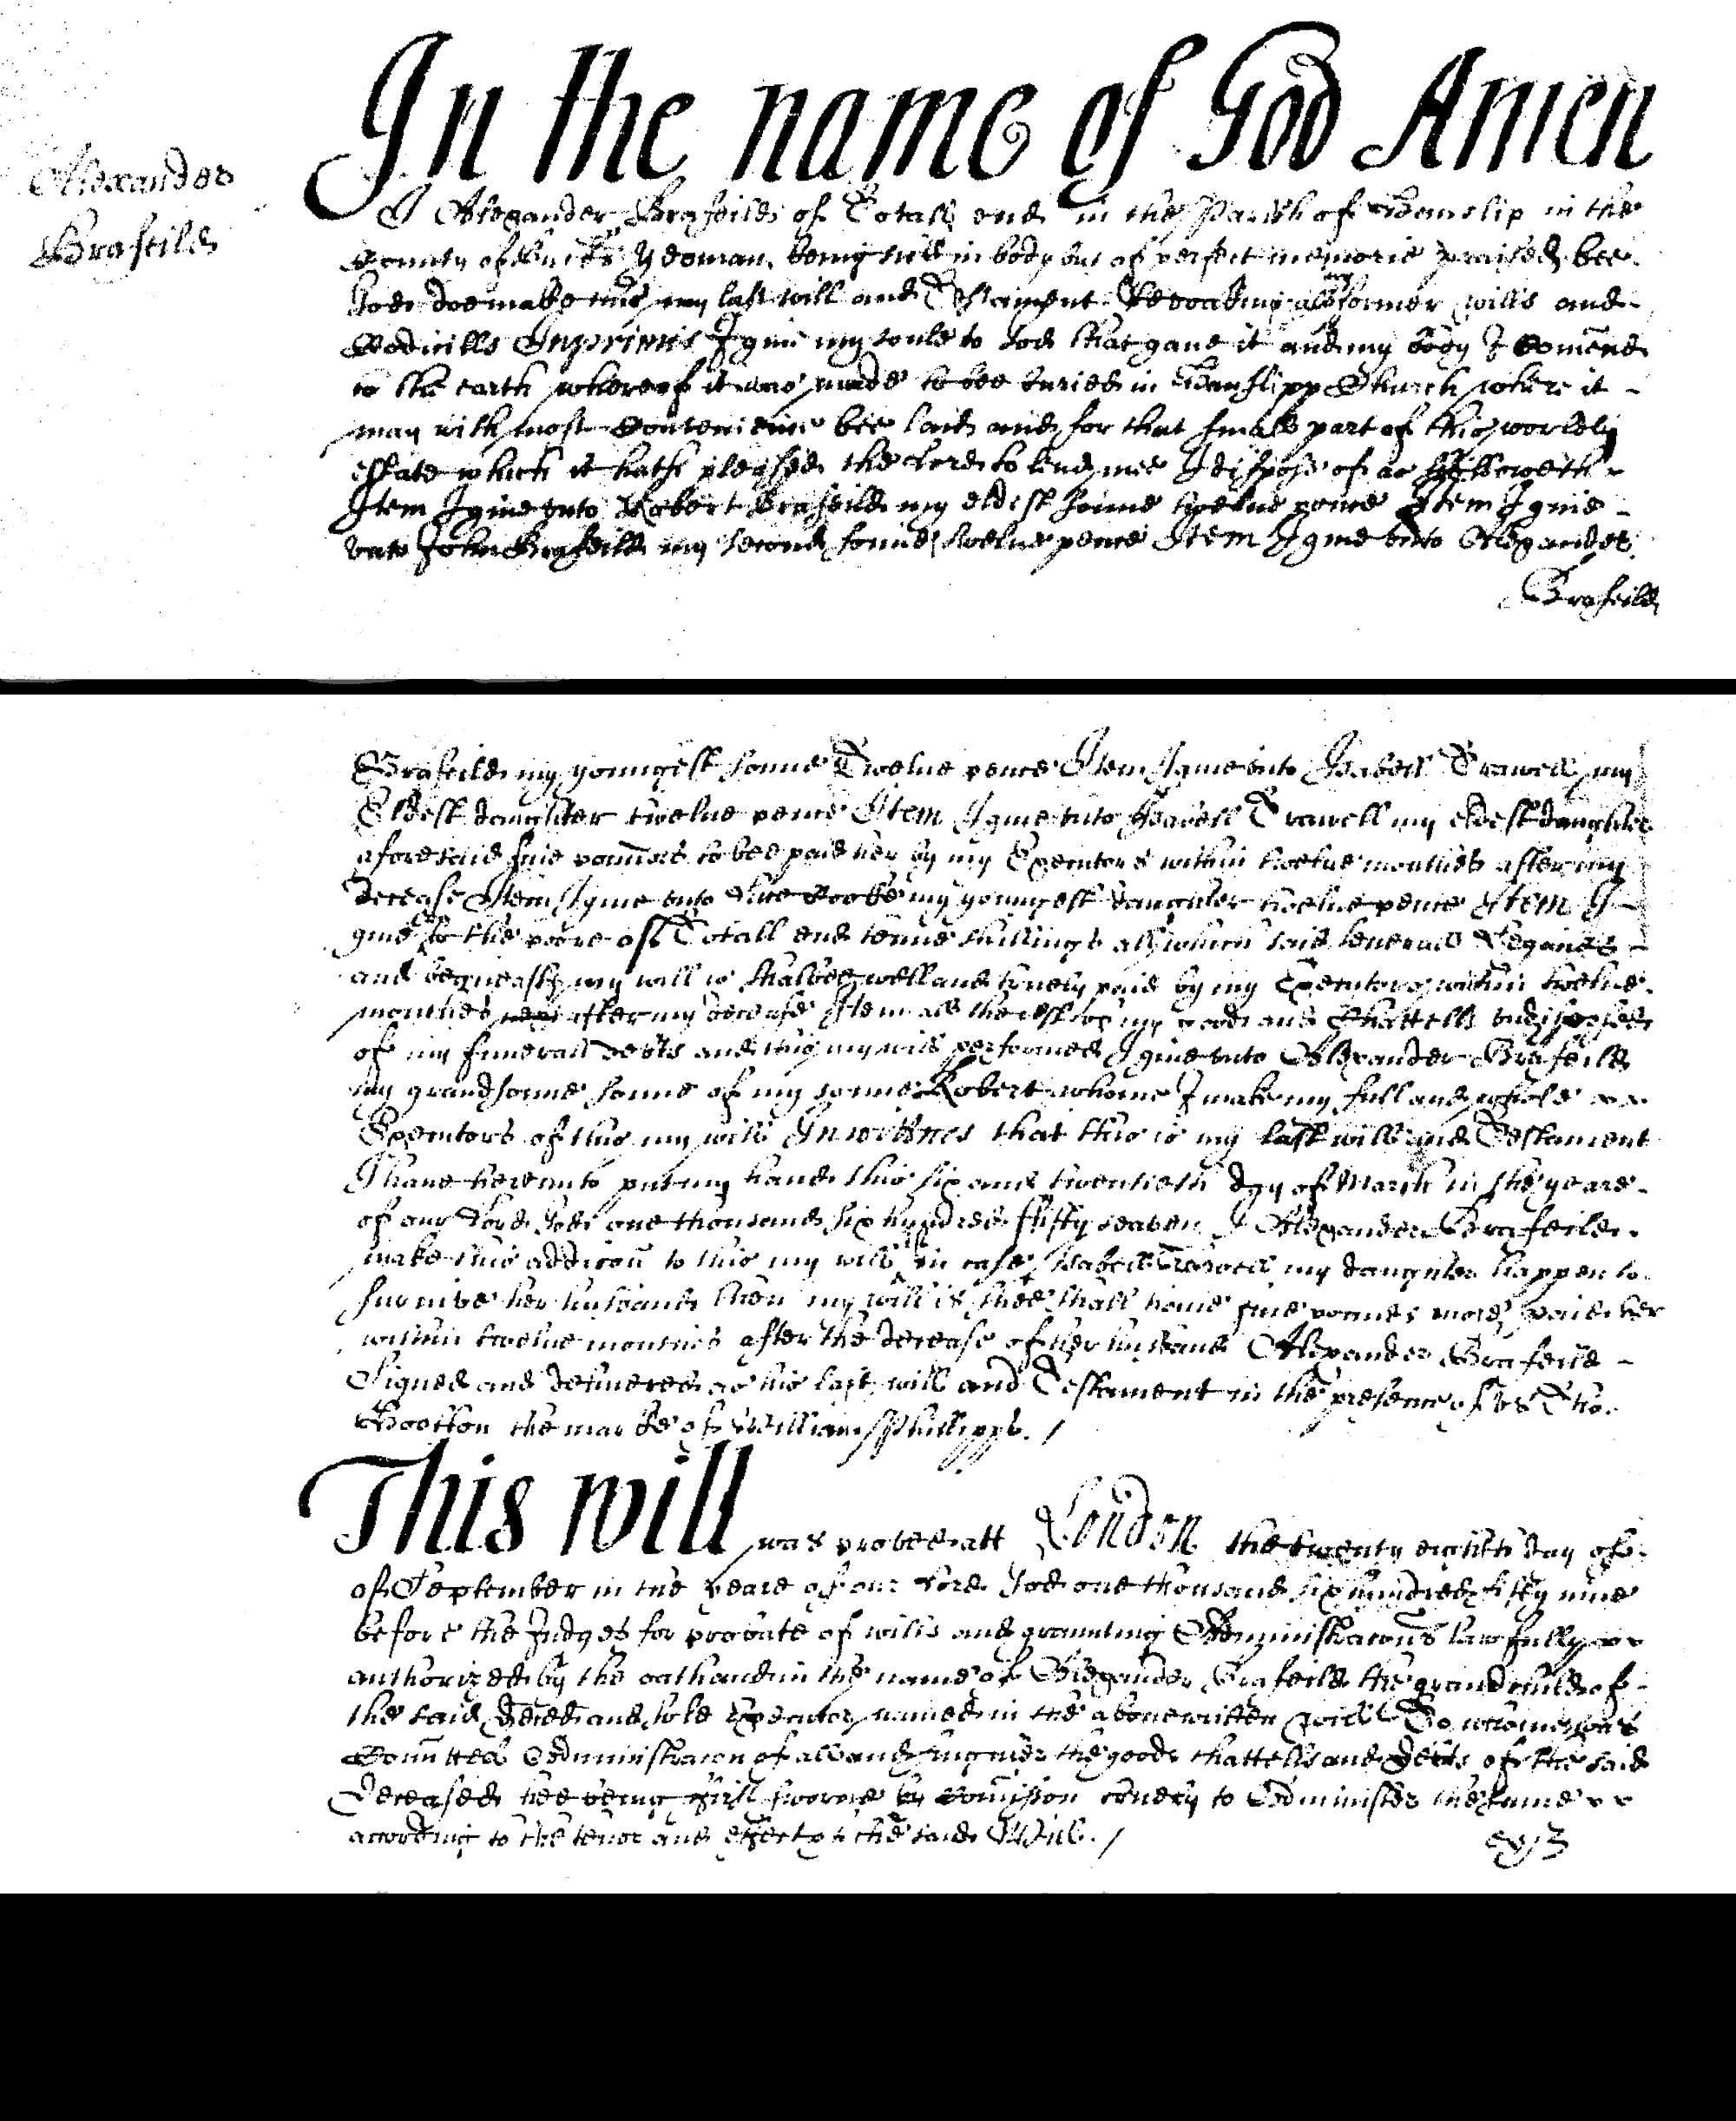 In the name of God Amen
Alexander
Brafeild
I Alexander Brafeild of Totall end in the Parish of Hanslip in the
County of Bucks Yeoman being sick in body but of perfect memorie praised bee
God doe make this my last will and Testament Revoaking all former wills and
Codicills Inprimis I giue my soule to God that gaue it and my body I comend
to the earth whereof it was made to bee buried in Hanslipp Church where it
may with most Convenience bee laid and for that small part of this worldly
estate which it hath pleased the Lord to lend mee I dispose of as followeth
Item I giue vnto Robert Brafeild my eldest sonne twelue pence Item I giue
vnto John Brafeild my second sonne twelue pence Item I giue vnto Alexander
Brafeild
Brafeild my youngest sonne Twelue pence Item I giue vnto Isabell Trawell my
Eldest daughter twelue pence Item I giue vnto Isabell Trawell my eldest daughter
aforesaid fiue pounds to bee paid her by my Executors within twelue months after my
decease Item I giue vnto my youngest daughter twelue pence Item I
giue to the poore of Totall end tenne shillings all which said seuerall Legacies
and bequeaths my will is shalbee well and truely paid by my Executors within twelue
monthes after my decease Item all the rest of my goods and Chattells vndisposed
of my funerall debts and this my will performed I giue vnto Alexander Brafeild
my grandsonne sonne of my sonne Robert whome I make my full and whole
Executors of this my will In witnes that this is my last will and Testament
I haue herevnto put my hand this six and twentieth day of March in the yeare
of our Lord God one thousand six hundred ffifty seaven I Alexander Brafeild
make this addicon to this my will in case Isabell Trawell my daughter happen to
survive her husband then my will is shee shall haue fiue pounds more paid her
within twelue monthes after the decease of her husband Alexander Brafeild
Signed and deliuered as his last will and Testament in the presence of vs Tho.
Gootton the marke of William Phillipps. /
This will was proved att London the twenty eighth day of
of September in the yeare of our Lord God one thousand six hundred fifty nine
before the Judges for probate of wills and graunting Administracons lawfully
authorized by the oath and in the name of Alexander Brafeild the grandchild of
the said deced and sole Executor named in the aboue written will To whome was
Comitted Administracon of all and singuler the goods chattells and debts of the said
deceased hee being first sworne by comission truely to Administer the same
according to the tenor and effect of the said Will. /